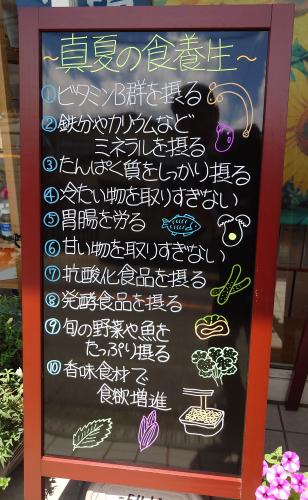 ～真夏の食養生～
①ビタミンB群を摂る
②鉄分やカリウムなど
ミネラルを摂る
③たんぱく質をしっかり摂る
④冷たい物を取りすぎない
⑤胃腸を労る
⑥甘い物を取りすぎない
⑦抗酸化食品を摂る
⑧発酵食品を摂る
⑨旬の野菜や魚を
たっぷり摂る
⑩香味食材で
食欲増進